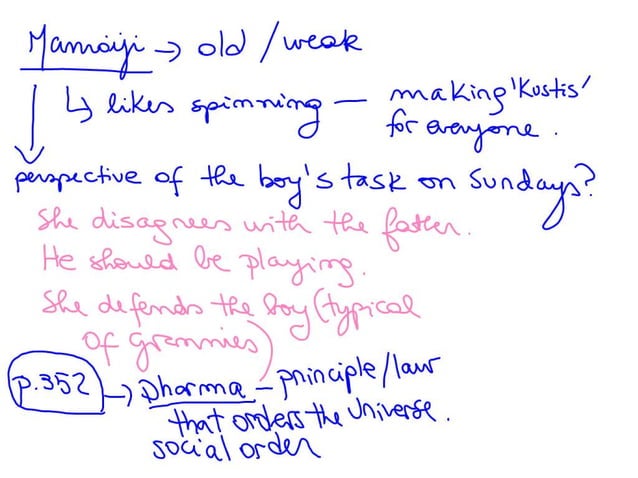 Mamaiji → old / weak
↳ likes spinning — making 'Kustis'
for everyone.
perspective of the boy's task on Sundays?
She disagrees with the father.
He should be playing.
She defends the boy (typical
of grannies)
p.352 → Dharma – principle/law
that orders the Universe.
social order